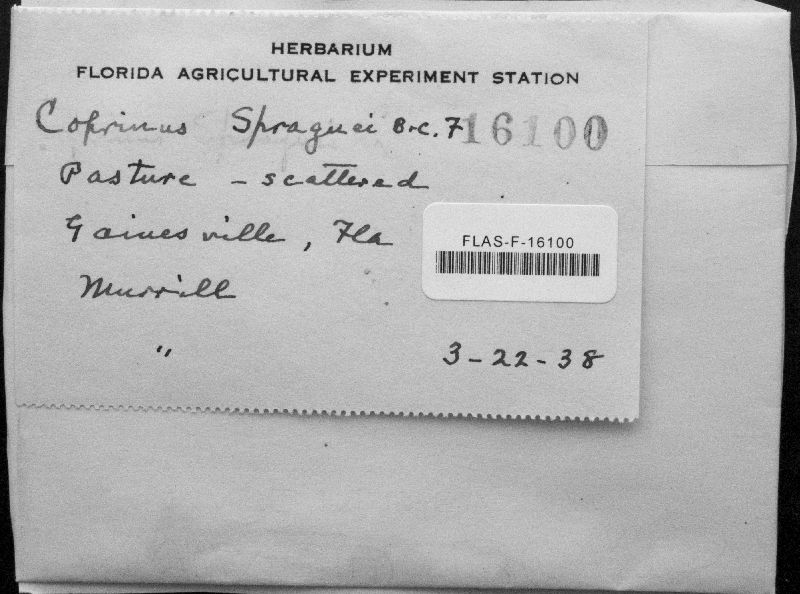 HERBARIUM
FLORIDA AGRICULTURAL EXPERIMENT STATION
Coprinus Spraguei B+C. F16100
Pasture - scattered
Gainesville, Fla
FLAS-F-16100
Murrill
" 3-22-38